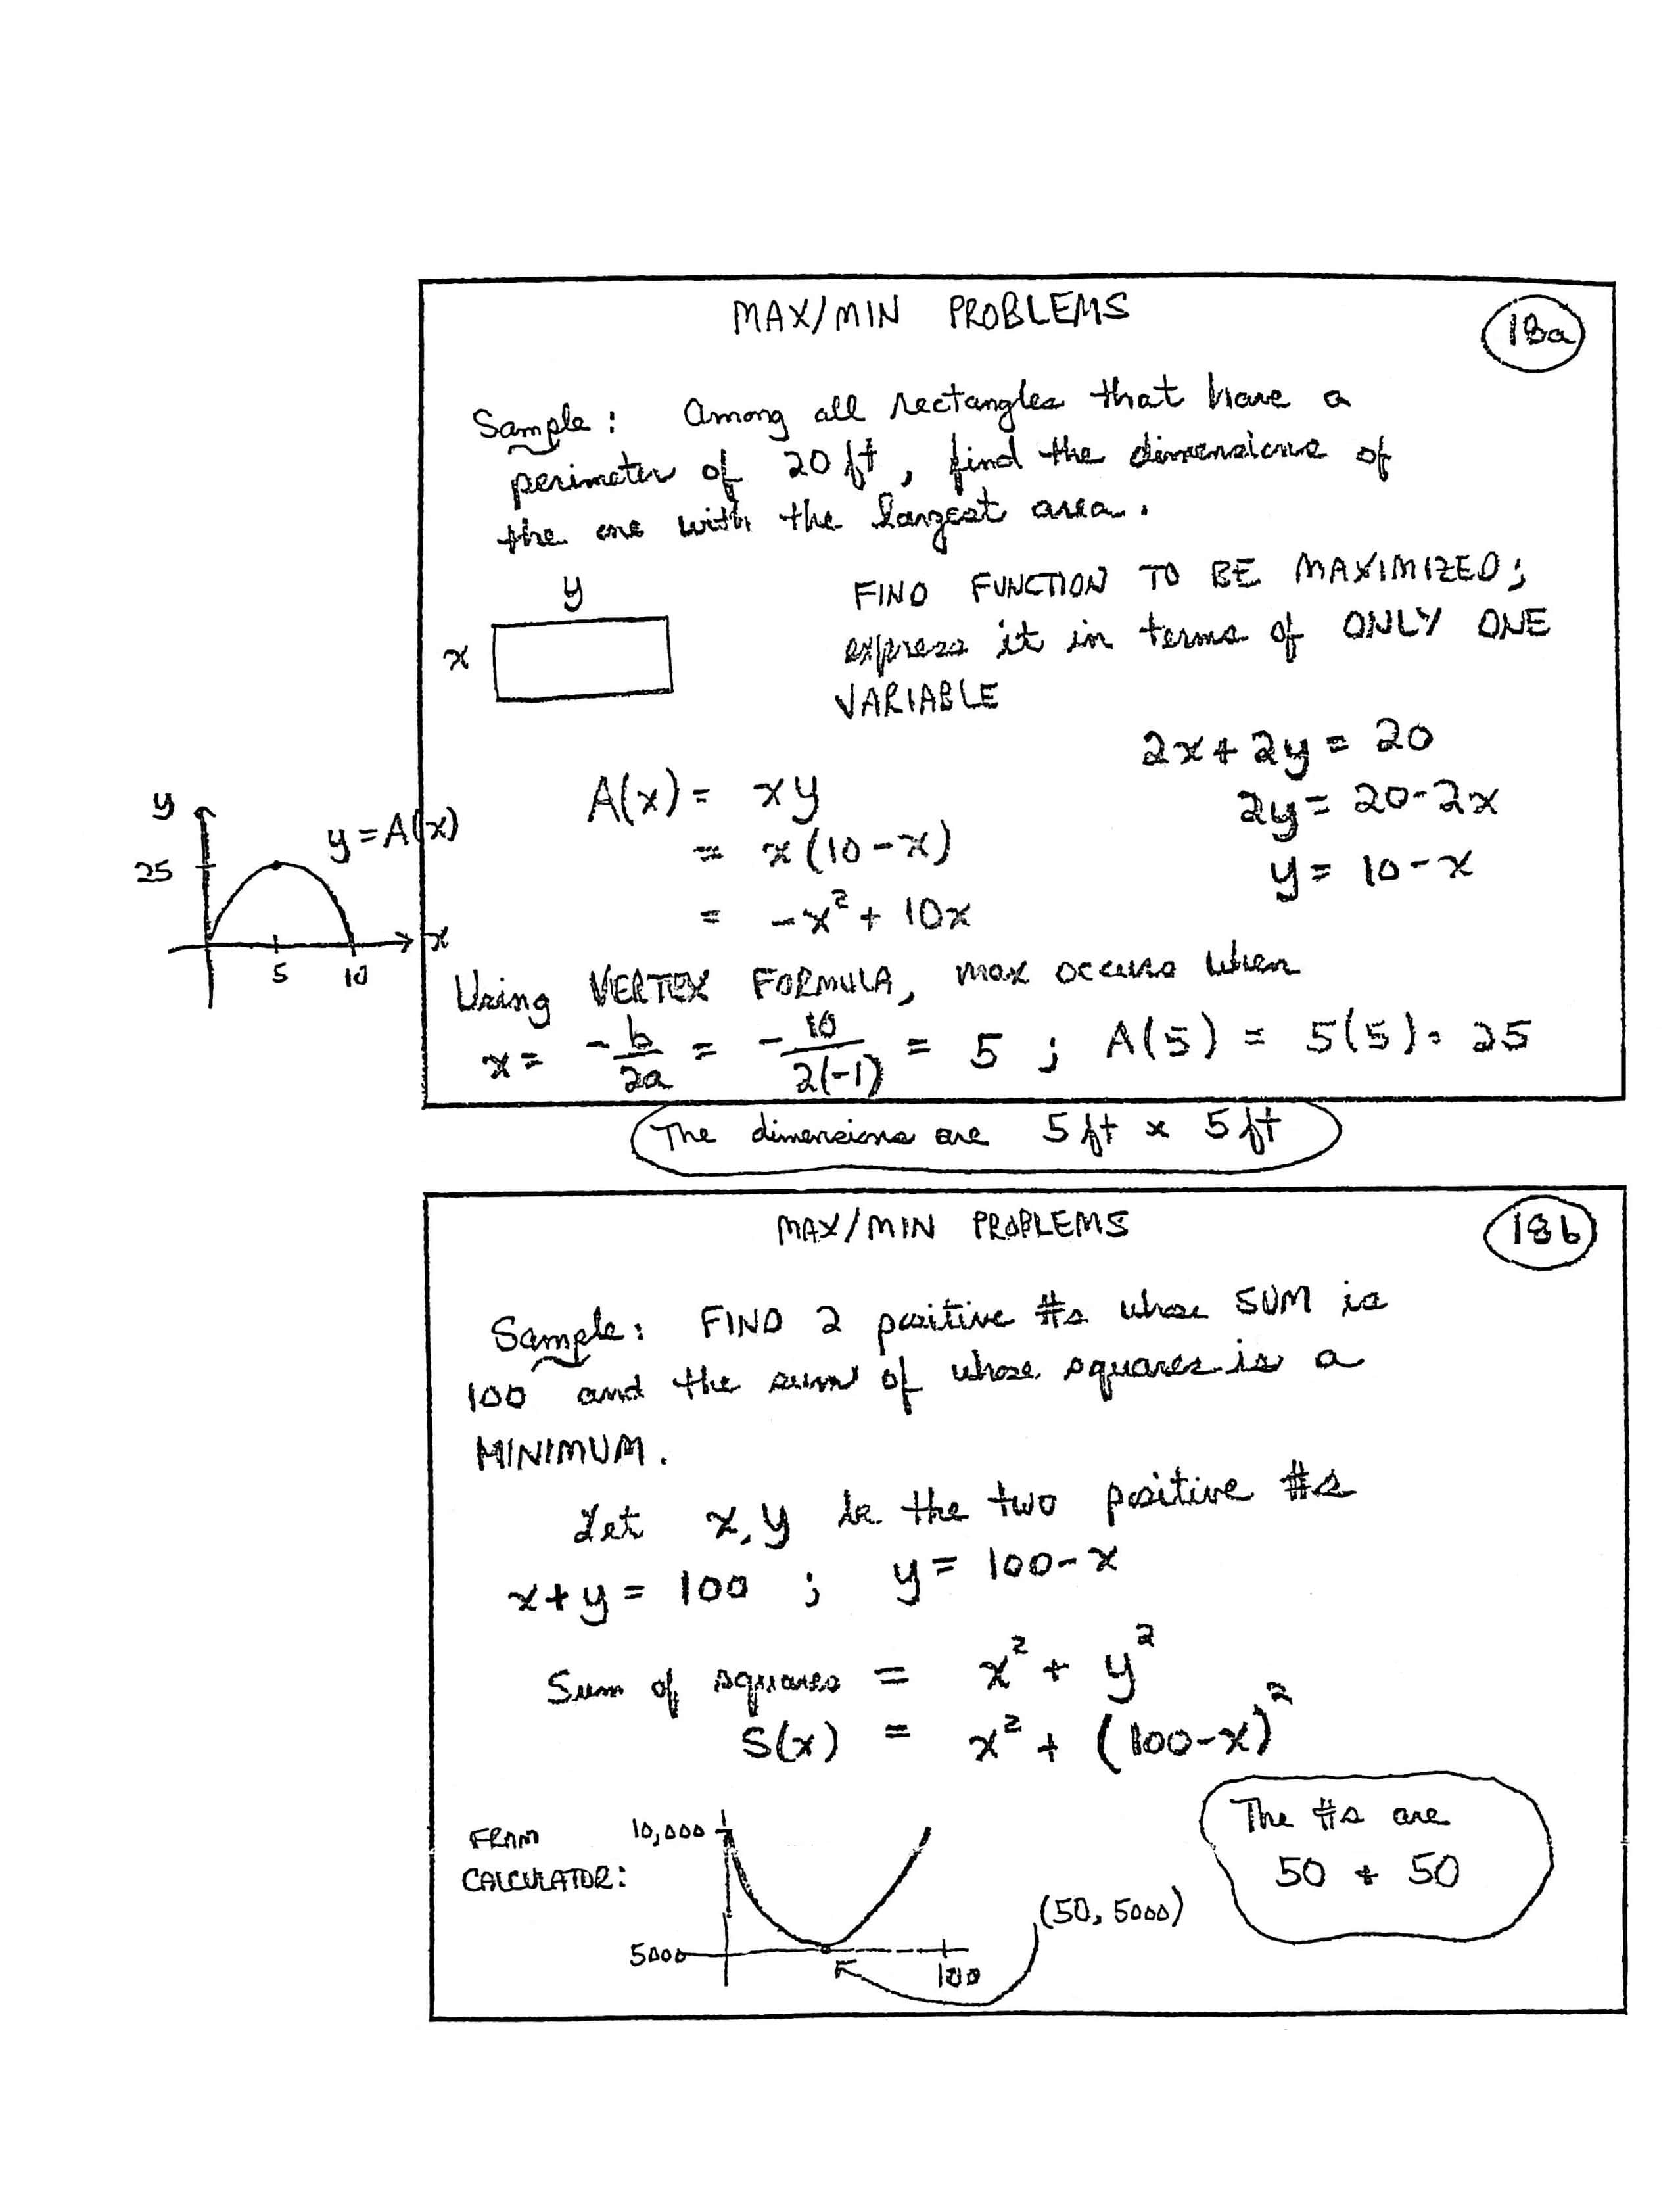 MAX/MIN PROBLEMS
18a
Sample: Among all rectangles that have a
perimeter of 20 ft, find the dimensions of
the one with the largest area.
y
x
FIND FUNCTION TO BE MAXIMIZED;
express it in terms of ONLY ONE
VARIABLE
2x + 2y = 20
2y = 20-2x
y = 10-x
A(x) = xy
= x(10-x)
= -x² + 10x
y
25
y = A(x)
x
5 10
Using VERTEX FORMULA, max occurs when
x = -b/2a = -10/2(-1) = 5 ; A(5) = 5(5) = 25
The dimensions are 5 ft x 5 ft
MAX/MIN PROBLEMS
18b
Sample: FIND 2 positive #s whose SUM is
100 and the sum of whose squares is a
MINIMUM.
Let x, y be the two positive #s
x+y = 100 ; y = 100-x
Sum of squares = x² + y²
S(x) = x² + (100-x)²
FROM
CALCULATOR:
10,000
5000
100
(50, 5000)
The #s are
50 + 50